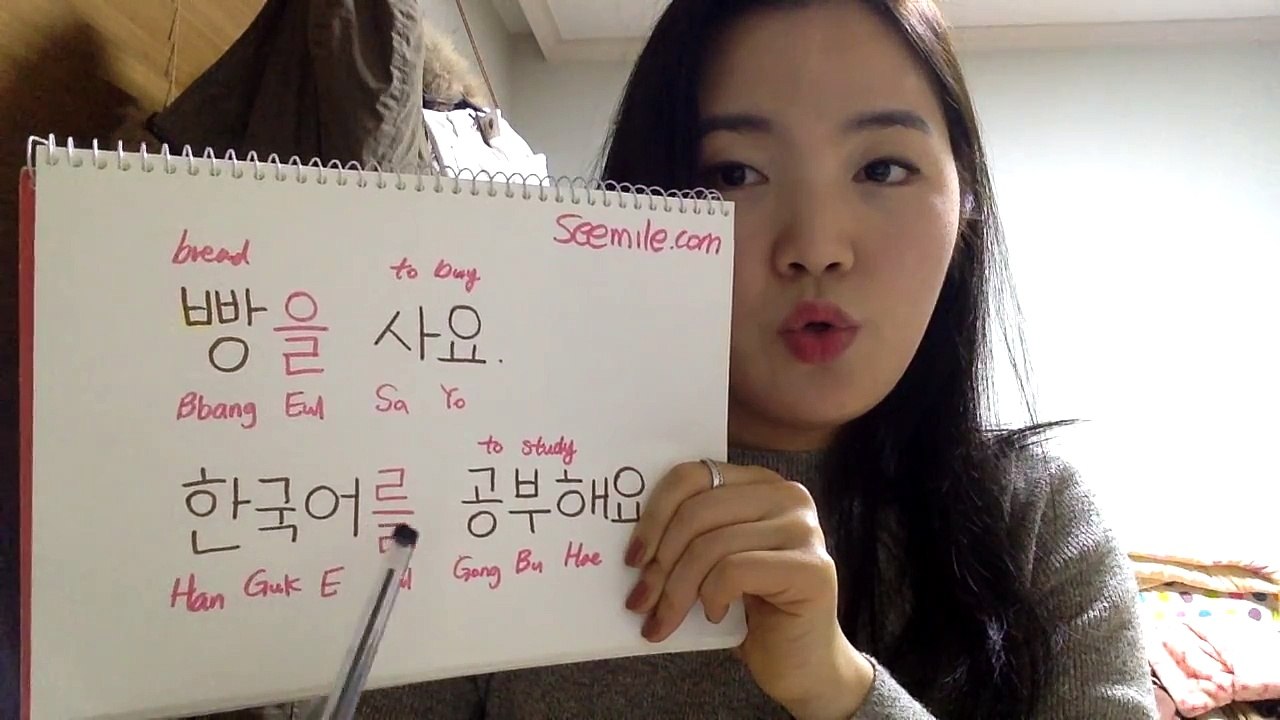 Seemile.com
bread to buy
빵을 사요.
Bbang Eul Sa Yo
to study
한국어를 공부해요
Han Guk E Gong Bu Hae